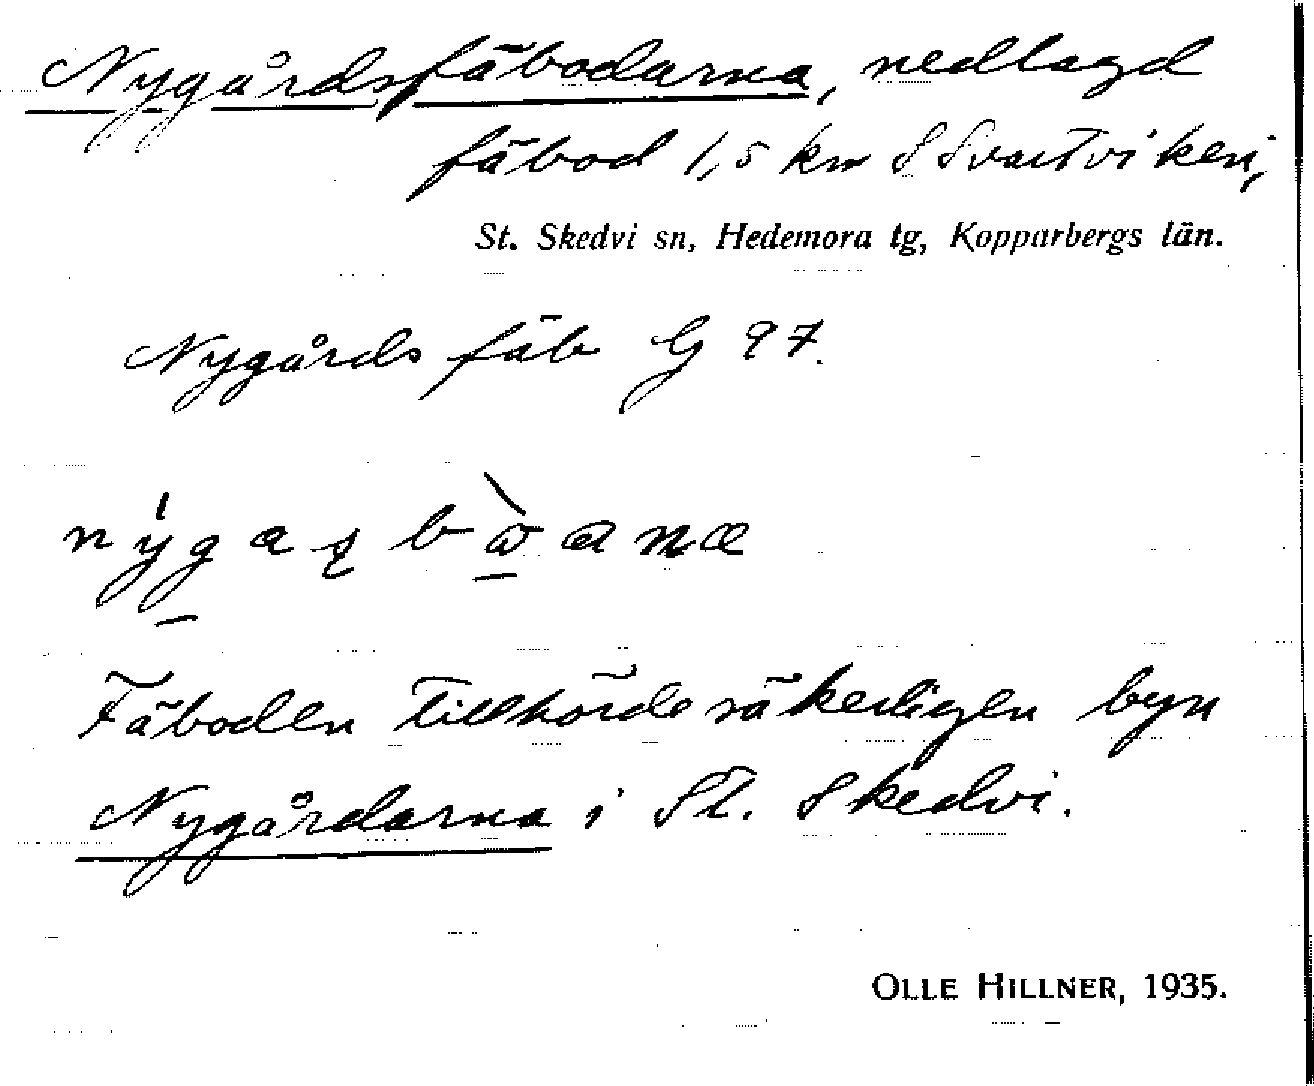 Nygårdsfäbodarna, nedlagd
fäbod 1,5 km S Svartviken,
St. Skedvi sn, Hedemora tg, Kopparbergs län.
Nygårds fäb G 97.
Fäboden tillhörde säkerligen byn
Nygårdarna i St. Skedvi.
OLLE HILLNER, 1935.